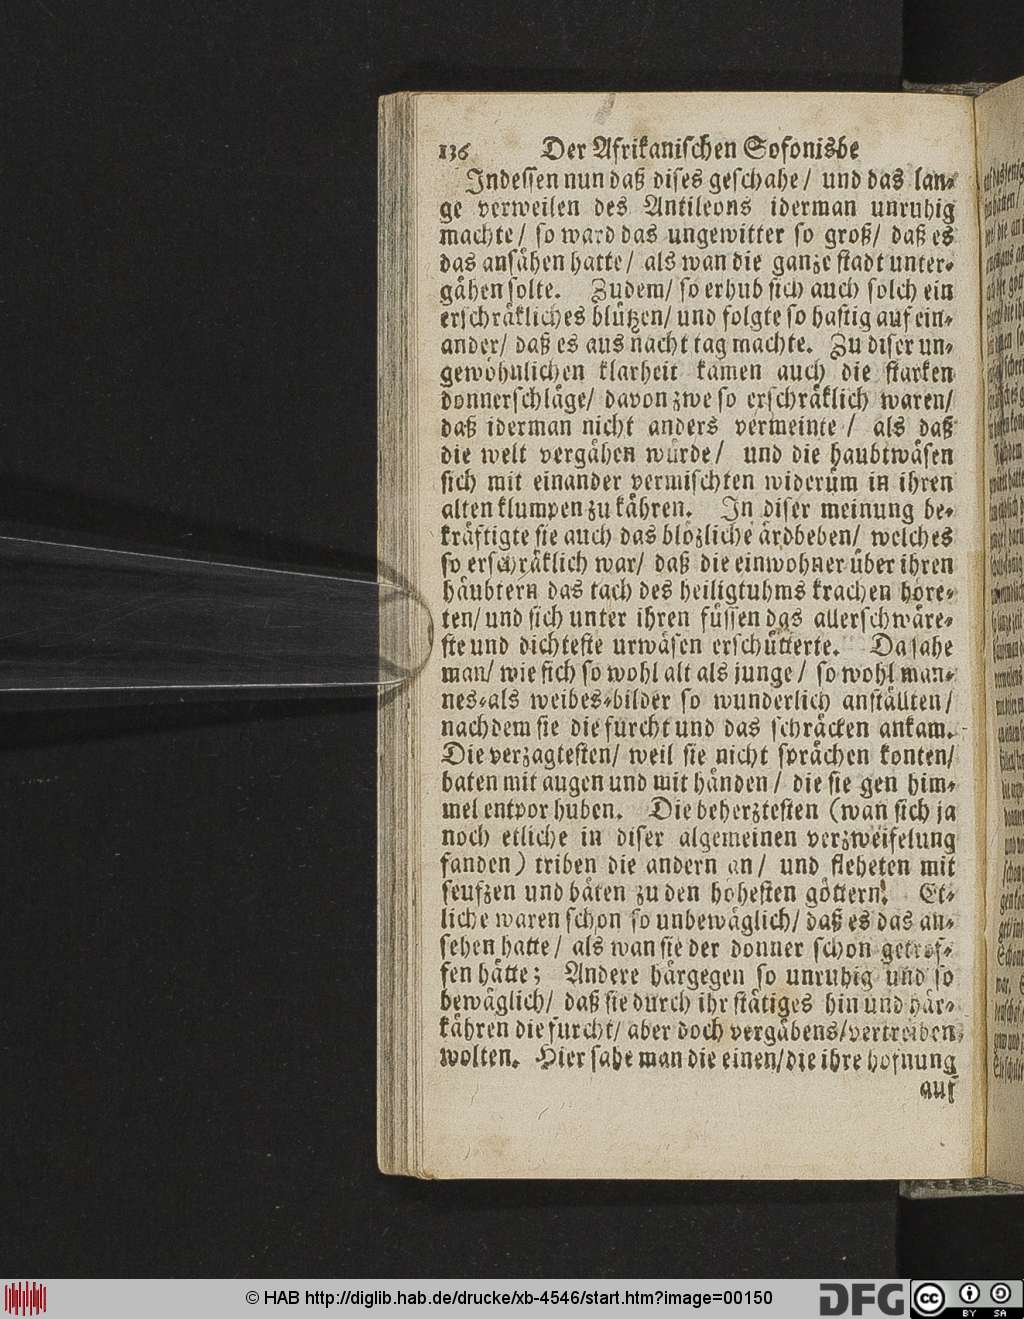 136 Der Afrikanischen Sofonisbe
Indessen nun daß dises geschahe/ und das lan⸗
ge verweilen des Antileons iderman unruhig
machte/ so ward das ungewitter so groß/ daß es
das ansåhen hatte/ als wan die ganze stadt unter⸗
gåhen solte. Zudem/ so erhub sich auch solch ein
erschråkliches blützen/ und folgte so hastig auf ein⸗
ander/ daß es aus nacht tag machte. Zu diser un⸗
gewöhnlichen klarheit kamen auch die starken
donnerschläge/ davon zwe so erschråklich waren/
daß iderman nicht anders vermeinte/ als daß
die welt vergåhen würde/ und die haubtwåsen
sich mit einander vermischten widerüm in ihren
alten klumpen zu kåhren. In diser meinung be⸗
kråftigte sie auch das blözliche årdbeben/ welches
so erschråklich war/ daß die einwohner über ihren
håubtern das tach des heiligtuhms krachen höre⸗
ten/ und sich unter ihren füssen das allerschwåre⸗
ste und dichteste urwåsen erschütterte. Da sahe
man/ wie sich so wohl alt als junge/ so wohl man⸗
nes⸗als weibes⸗bilder so wunderlich anstållten/
nachdem sie die furcht und das schråcken ankam.
Die verzagtesten/ weil sie nicht språchen konten/
baten mit augen und mit hånden/ die sie gen him⸗
mel entpor huben. Die beherztesten (wan sich ja
noch etliche in diser algemeinen verzweifelung
fanden) triben die andern an/ und fleheten mit
seufzen und båten zu den höhesten göttern. Et⸗
liche waren schon so unbewåglich/ daß es das an⸗
sehen hatte/ als wan sie der donner schon getrof⸗
fen håtte; Andere hårgegen so unruhig und so
bewåglich/ daß sie durch ihr ståtiges hin und hår⸗
kåhren die furcht/ aber doch vergåbens/ vertreiben
wolten. Hier sahe man die einen/ die ihre hofnung
auf
© HAB http://diglib.hab.de/drucke/xb-4546/start.htm?image=00150
DFG
cc BY SA